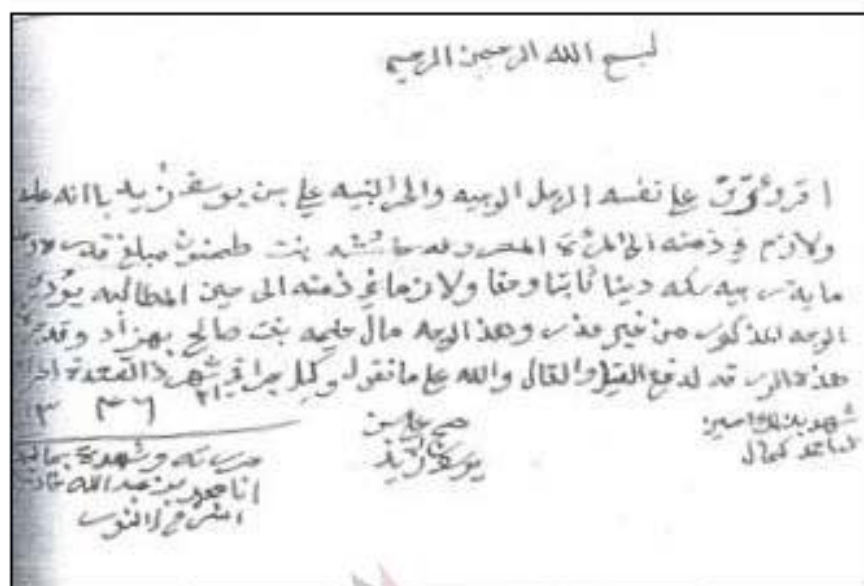 بسم الله الرحمن الرحيم
اقر و على نفسه الرجل الوجيه والحر النبيه علي بن يوسف زيد بانه عليه
ولازم في ذمته الى المرءة المعروفه عائشه بنت مبلغ قدره
ماية ربيه سكه دينا ثابتا وحقا ولازما في ذمته الى حين المطالبه يؤدي
الوجه المذكور من غير عذر وهذا الوجه مال حليمه بنت صالح بهزاد وقد
هذه الورقه لدفع القيل والقال والله على ما نقول وكيل جرا في شهر ذالقعدة
٢١ ١٣٤٦
شهد بذلك امين
كمال
صح علي بن
يوسف زيد
حررته وشهدت بما فيه
انا محمد بن عبد الله